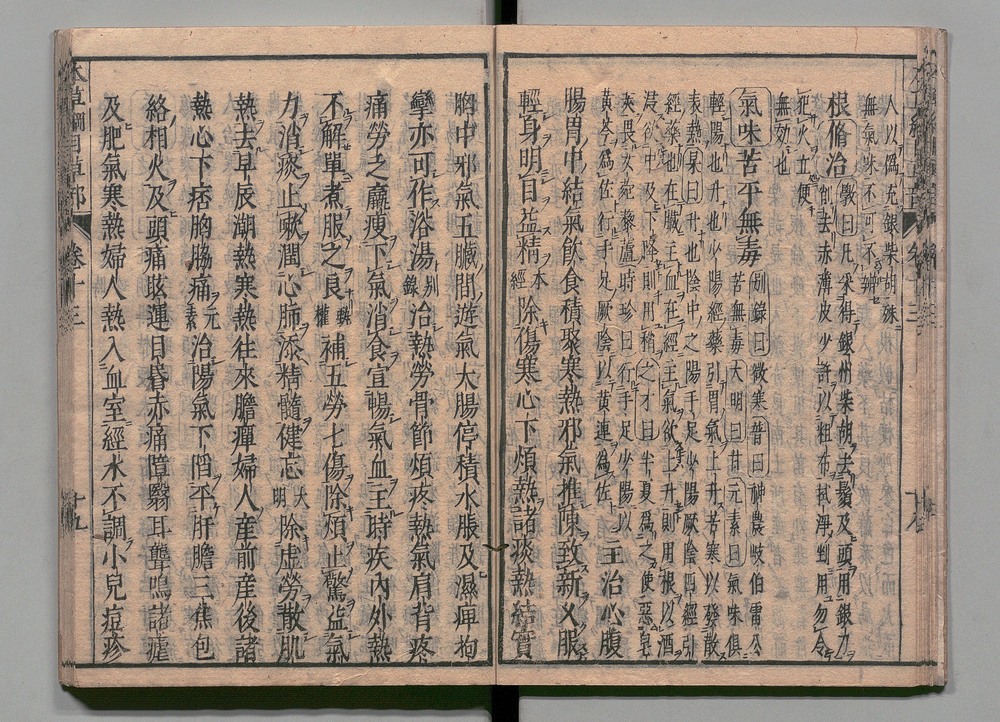 人以僞充銀柴胡殊
無氣味不可不辨
根脩治
斅曰凡采得銀州柴胡去鬚及頭用銀刀
削去赤薄皮少許以粗布拭淨剉用勿令
犯火立便
無効也
氣味苦平無毒
別錄曰微寒普曰神農岐伯雷公
苦無毒大明曰甘元素曰氣味俱
輕陽也升也少陽經藥引胃氣上升苦寒以發散
表熱杲曰升也陰中之陽手足少陽厥陰四經引
經藥也在臟主血在經主氣欲上升則用根以酒
浸欲中及下降則用梢之才曰半夏爲之使惡皂
莢畏女菀藜蘆時珍曰行手足少陽以
黃芩爲佐行手足厥陰以黃連爲佐
主治心腹
腸胃中結氣飲食積聚寒熱邪氣推陳致新久服
輕身明目益精本經除傷寒心下煩熱諸痰熱結實
胸中邪氣五臟間遊氣大腸停積水脹及濕痺拘
攣亦可作浴湯別錄治熱勞骨節煩疼熱氣肩背疼
痛勞乏羸瘦下氣消食宣暢氣血主時疾內外熱
不解單煮服之良甄權補五勞七傷除煩止驚益氣
力消痰止嗽潤心肺添精髓健忘大明除虛勞散肌
熱去早辰潮熱寒熱往來膽癉婦人產前產後諸
熱心下痞胸脇痛元素治陽氣下陷平肝膽三焦包
絡相火及頭痛眩運目昏赤痛障翳耳聾鳴諸瘧
及肥氣寒熱婦人熱入血室經水不調小兒痘疹
本草綱目草部 卷十三 十五